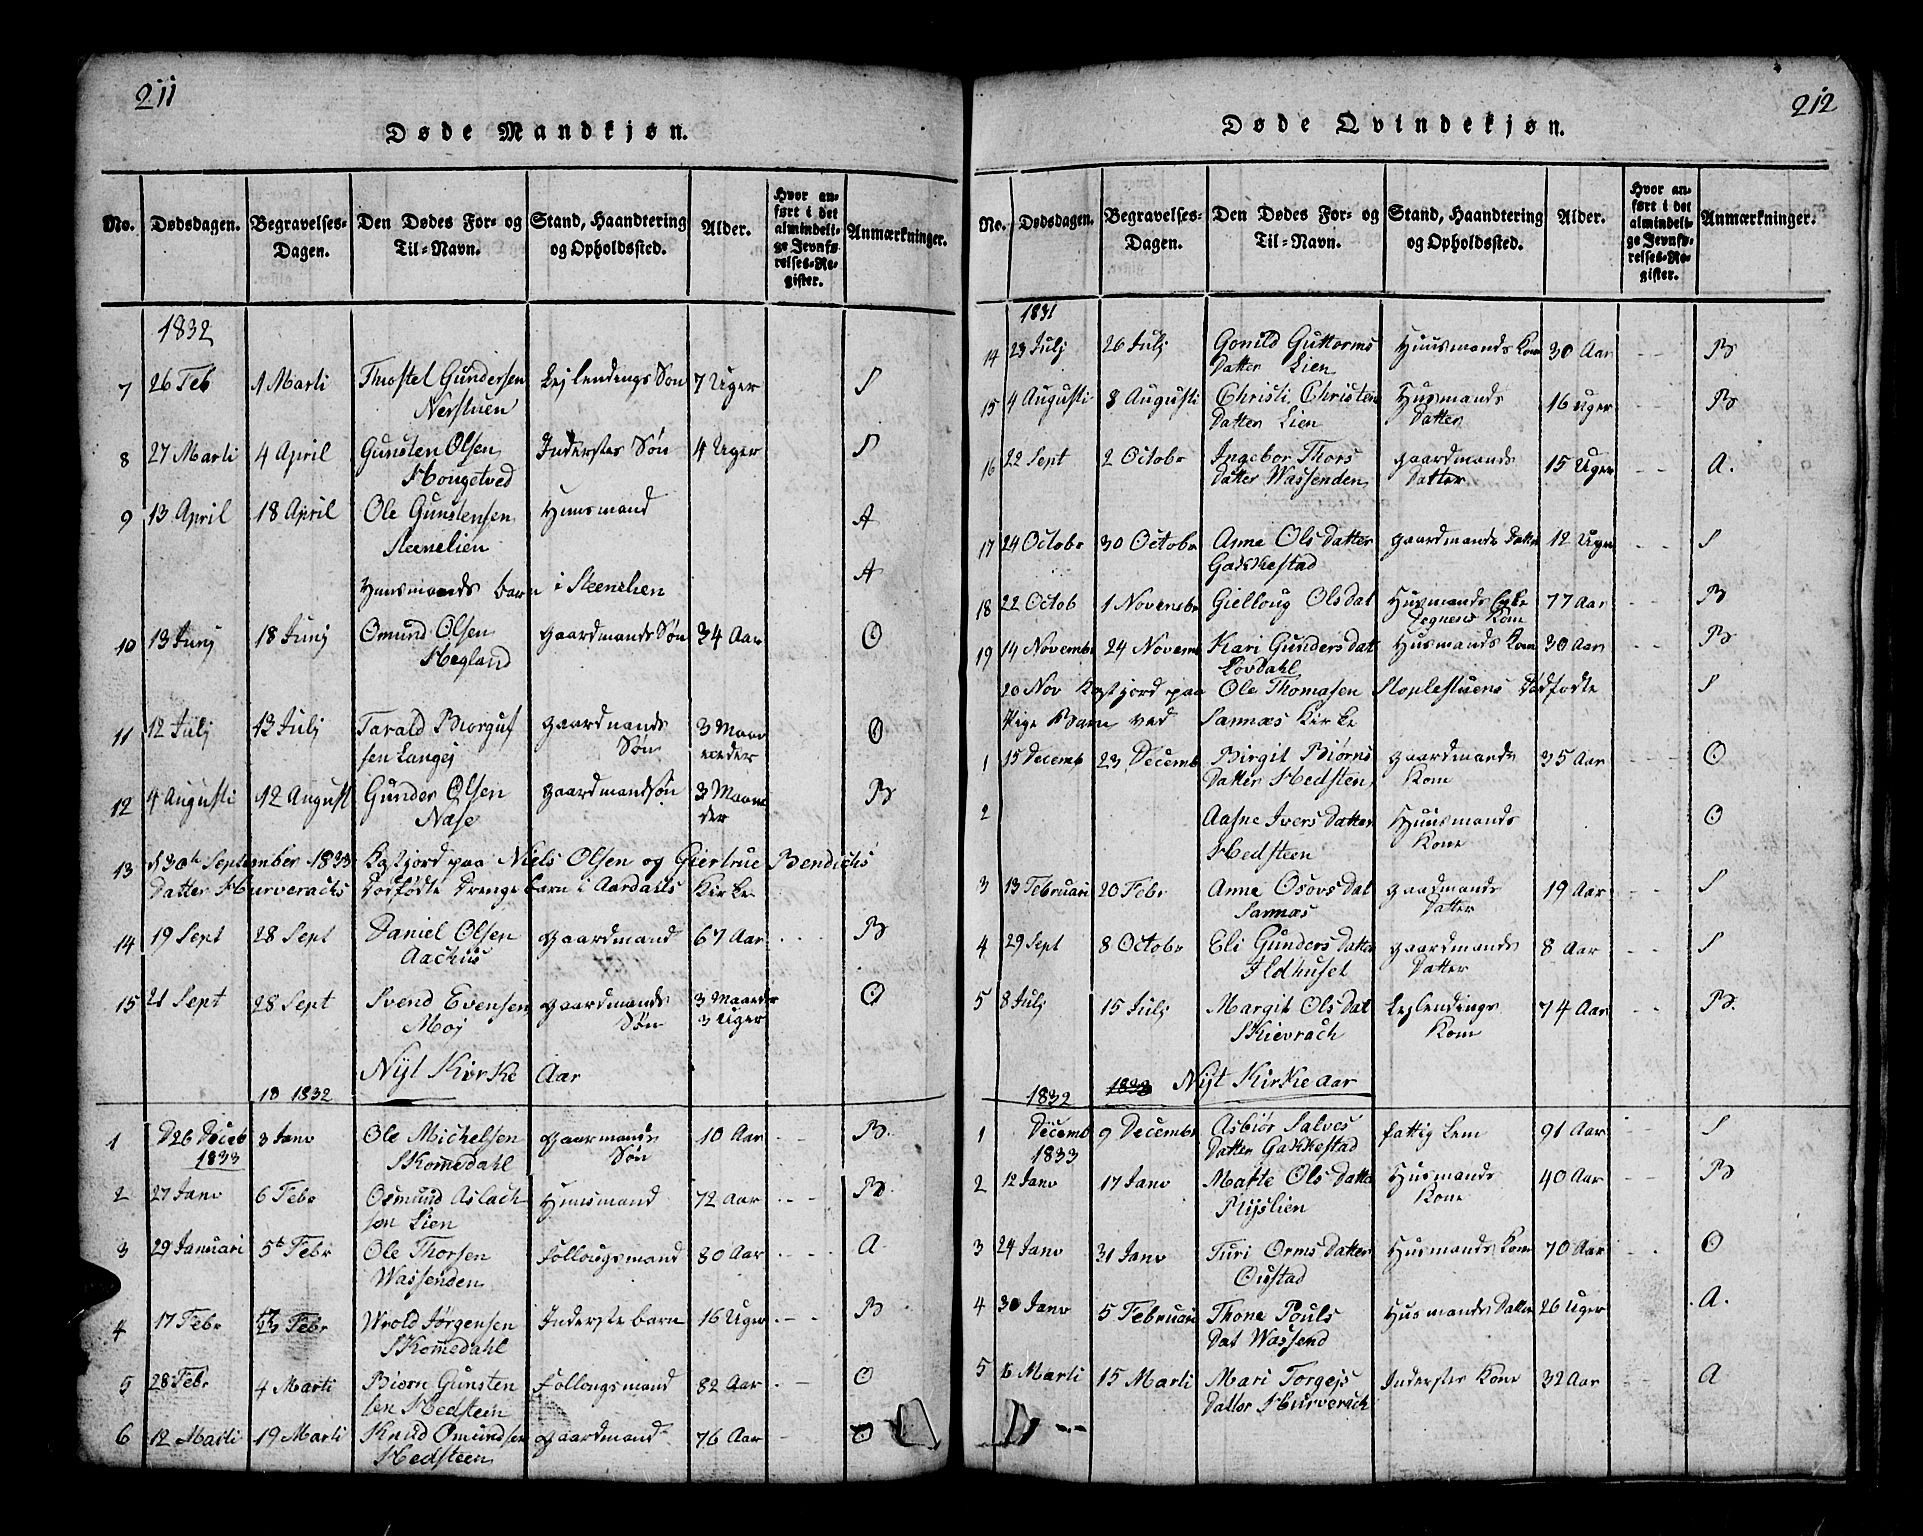 211
Døde Mandkjøn.
No. Dødsdagen. Begravelses-Dagen. Den Dødes For- og Til-Navn. Stand, Haandtering og Opholdssted. Alder. Hvor anført i det almindelige Jevnførelses-Register. Anmærkninger.
1832
7 26 Feb 1 Marti Thostel Gundersen Leylendings Søn 7 Uger S
Nerstuen
8 27 Marti 4 April Gunsten Olsen Inderstes Søn 4 Uger S
Hougetved
9 13 April 18 April Ole Gunstensen Huusmand A
Steenelien
Huusmands barn i Steenelien A
10 13 Junj 18 Junj Omund Olsen gaardmands Søn 34 Aar O
Hegland
11 12 Julj 13 Julj Tarald Biorguf gaardmands 3 Maa
sen Langej Søn neder O
12 4 Augusti 12 August Gunder Olsen gaardmandsøn 3 Maane B
Nase der
13 d 30th September 1833 Kastjord paa Niels Olsen og Giertrue Bendichs
Datter Hurverachs dødfødte Drengebarn i Aardalls Kirke
14 19 Sept 28 Sept Daniel Olsen gaardmand 67 Aar B
Aachus
15 21 Sept 28 Sept Svend Evensen gaardmands 3 Maaneder O
Moj Søn 3 Uger
Nijt Kirke Aar
18 1832
1 D26 Deceb 3 Janv Ole Michelsen gaarmands 10 Aar B
1833 Skomedahl Søn
2 27 Janv 6 Febr Osmund Aslach Huusmand 72 Aar B
sen Lien
3 29 Januari 5t Febr Ole Thorsen Follougsmand 80 Aar A
Wassenden
4 17 Febr Febr Wrold Jørgensen Inderste barn 16 Uger B
Skomedahl
5 28 Febr 4 Marti Biorn Gunsten Follougsmand 82 Aar O
sen Hedsteen
6 12 Marti 19 Marti Knud Omundsen gaardmand 76 Aar O
Hedsteen
212
Døde Qvindekjøn.
No. Dødsdagen. Begravelses-Dagen. Den Dødes For- og Til-Navn. Stand, Haandtering og Opholdssted. Alder. Hvor anført i det almindelige Jevnførelses-Register. Anmærkninger.
1831
14 23 Julj 26 Julj Gonild Guttorms Huusmands Kone 30 Aar B
Datter Lien
15 4 Augusti 8 Augusti Christi Christens Husmands 16 uger B
Datter Lien Datter
16 22 Sept 2 Octobr Ingebor Thors gaardmands 15 Uger A.
Datter Wassenden Datter
17 24 Octobr 30 Octobr Anne Ols Datter gaardmands Datter 12 Uger S
Gaskestad
18 22 Octob 1 Novembr Gielloug Olsdat Husmands 77 Aar B
Degnens Kone
19 14 Novembr 24 Novem Kari Gundersdat Husmands Kone 30 Aar B
Lovdahl
20 Nov Kastjord paa Ole Thomasen Stoplestuens Dødfødte S
Pige Barn ved Sannæs Kirke
1 15 Decemb 23 Decemb Birgit Biørns gaardmands 35 Aar O
Datter Hedsten Kone
2 Aasne Ivers Datter Huusmands O
Hedsteen Kone
3 13 Februari 20 Febr Anne Osovs Dat gaadmands 19 Aar S
Sannæs Datter
4 29 Sept 8 Octobr Eli Gunders Datter gaardmands 8 Aar S
Ildhuset Datter
5 8 Julj 15 Julj Margit Olsdat Leylendings 74 Aar B.
Skievrach Kone
Nijt Kirke aar
1832
1 Decemb 9 Decembr Asbiør Salves fattig Lem 91 Aar S
1833 Datter Gakkestad
2 12 Janv 17 Janv Marte Ols Datter Husmands 40 Aar B
Rijslien Kone
3 24 Janv 31 Janv Turi Orms Datter Husmands Kone 70 Aar O
Oustad
4 30 Janv 5 Februari Thone Pouls Husmands Datter 26 Uger A.
Dat Wassend
5 6 Marti 15 Marti Mari Torgejs Inderstes Kone 32 Aar A
Datter Hurverach